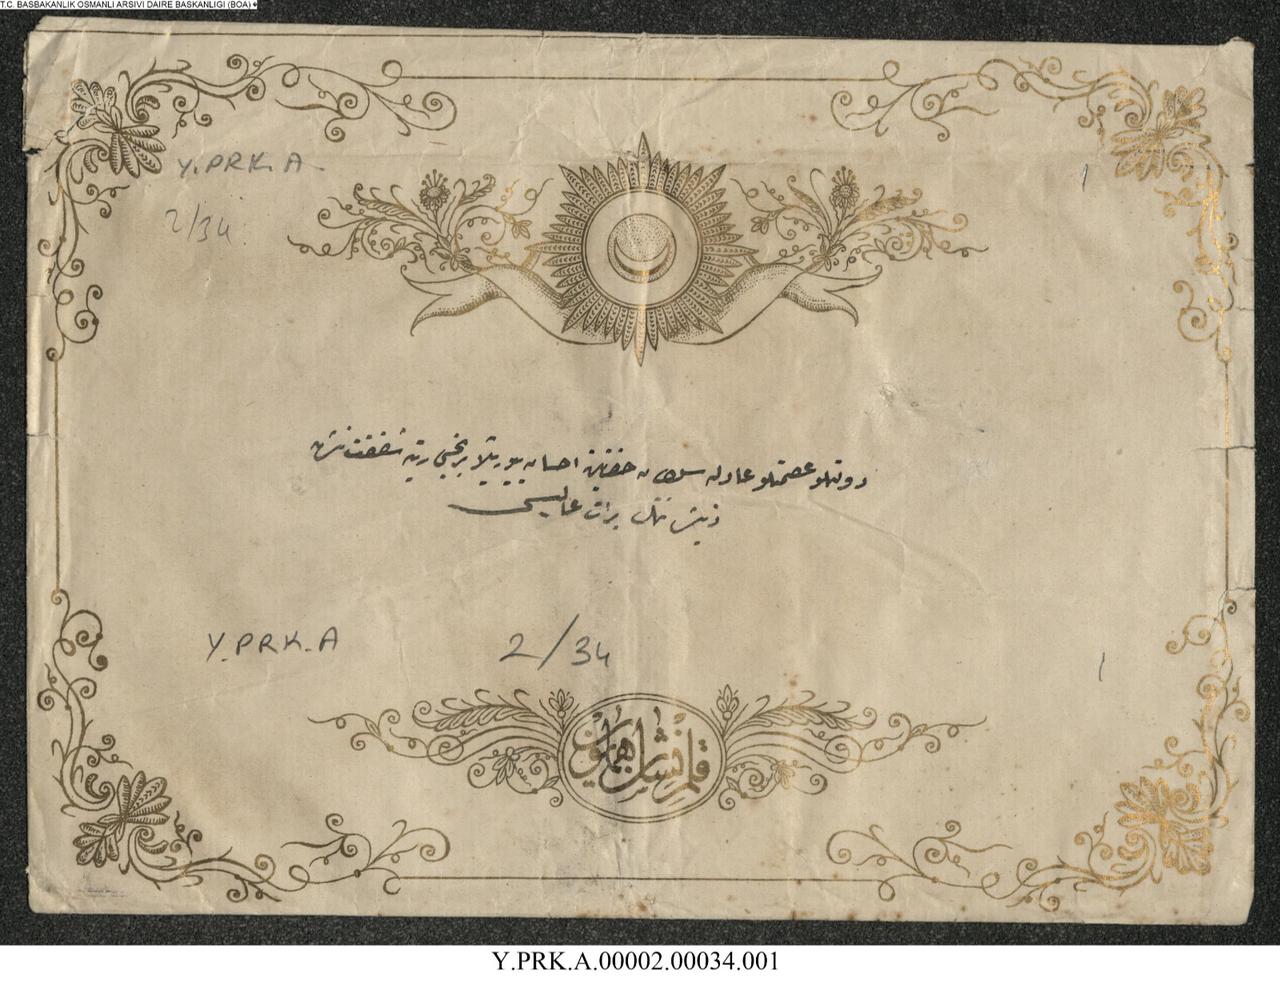 T.C. BASBAKANLIK OSMANLI ARSIVI DAIRE BASKANLIGI (BOA)
Y.PRK.A.
1
2/34
دولتلو عصمتلو عادله سلطان حضرتلرينه احسان بيوريلان برنجي رتبه شفقت نشان
ذيشاننك برات عاليسى
Y.PRK.A 2/34 1
قلم نشان همايون
Y.PRK.A.00002.00034.001